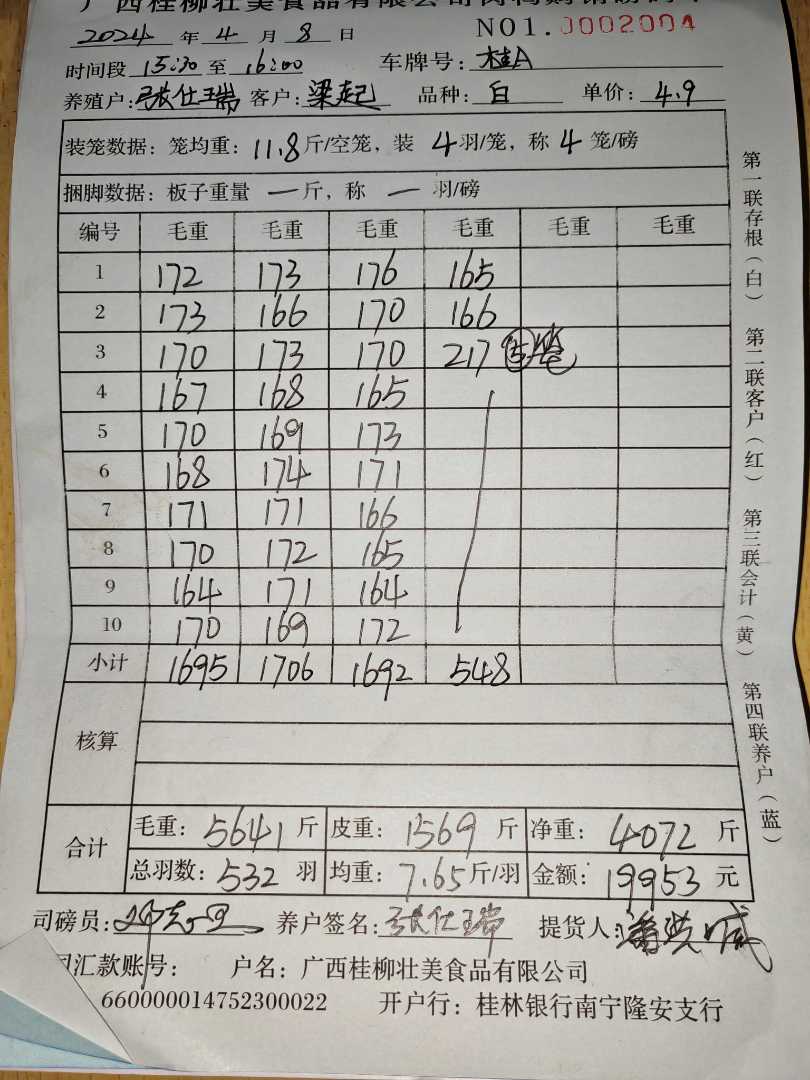 广西桂柳壮美食品有限公司
2024 年 4 月 8 日 NO1.0002004
时间段 15:30 至 16:00 车牌号: 桂A
养殖户: 张仕瑞 客户: 梁起 品种: 白 单价: 4.9
装笼数据: 笼均重: 11.8斤/空笼, 装 4羽/笼, 称 4 笼/磅
捆脚数据: 板子重量 一斤, 称 一 羽/磅
编号 毛重 毛重 毛重 毛重 毛重 毛重
1 172 173 176 165
2 173 166 170 166
3 170 173 170 217 ⑤笼
4 167 168 165
5 170 169 173
6 168 174 171
7 171 171 166
8 170 172 165
9 164 171 164
10 170 169 172
小计 1695 1706 1692 548
核算
合计
毛重: 5641 斤 皮重: 1569 斤 净重: 4072 斤
总羽数: 532 羽 均重: 7.65斤/羽 金额: 19953 元
司磅员: 养户签名: 张仕瑞 提货人:
汇款账号: 户名: 广西桂柳壮美食品有限公司
660000014752300022 开户行: 桂林银行南宁隆安支行
第一联存根(白) 第二联客户(红) 第三联会计(黄) 第四联养户(蓝)